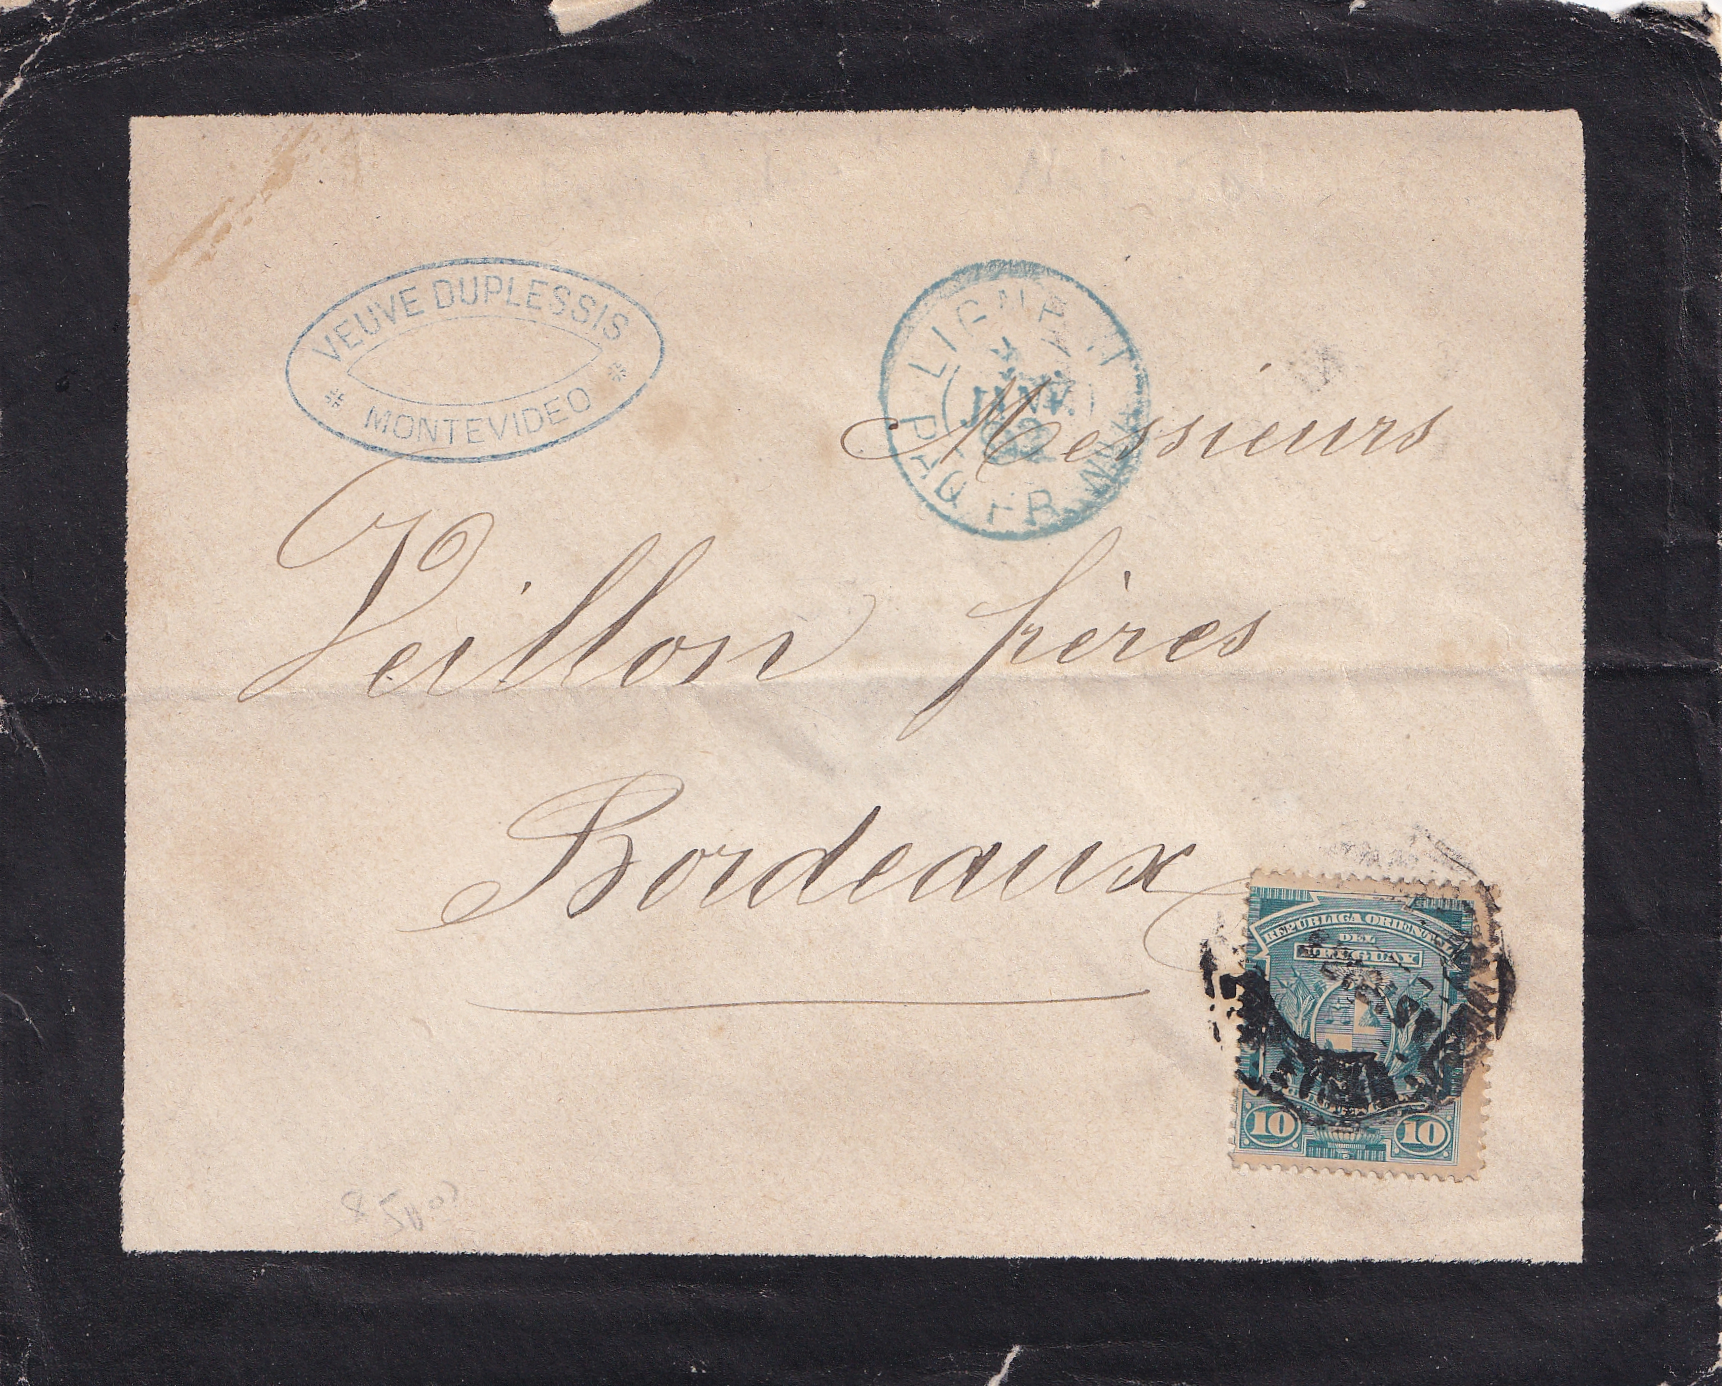 VEUVE DUPLESSIS
MONTEVIDEO
LIGNE
JANV.
92
PAQ FR
Messieurs
Veillon frères
Bordeaux
REPÚBLICA ORIENTAL
DEL
URUGUAY
10 10